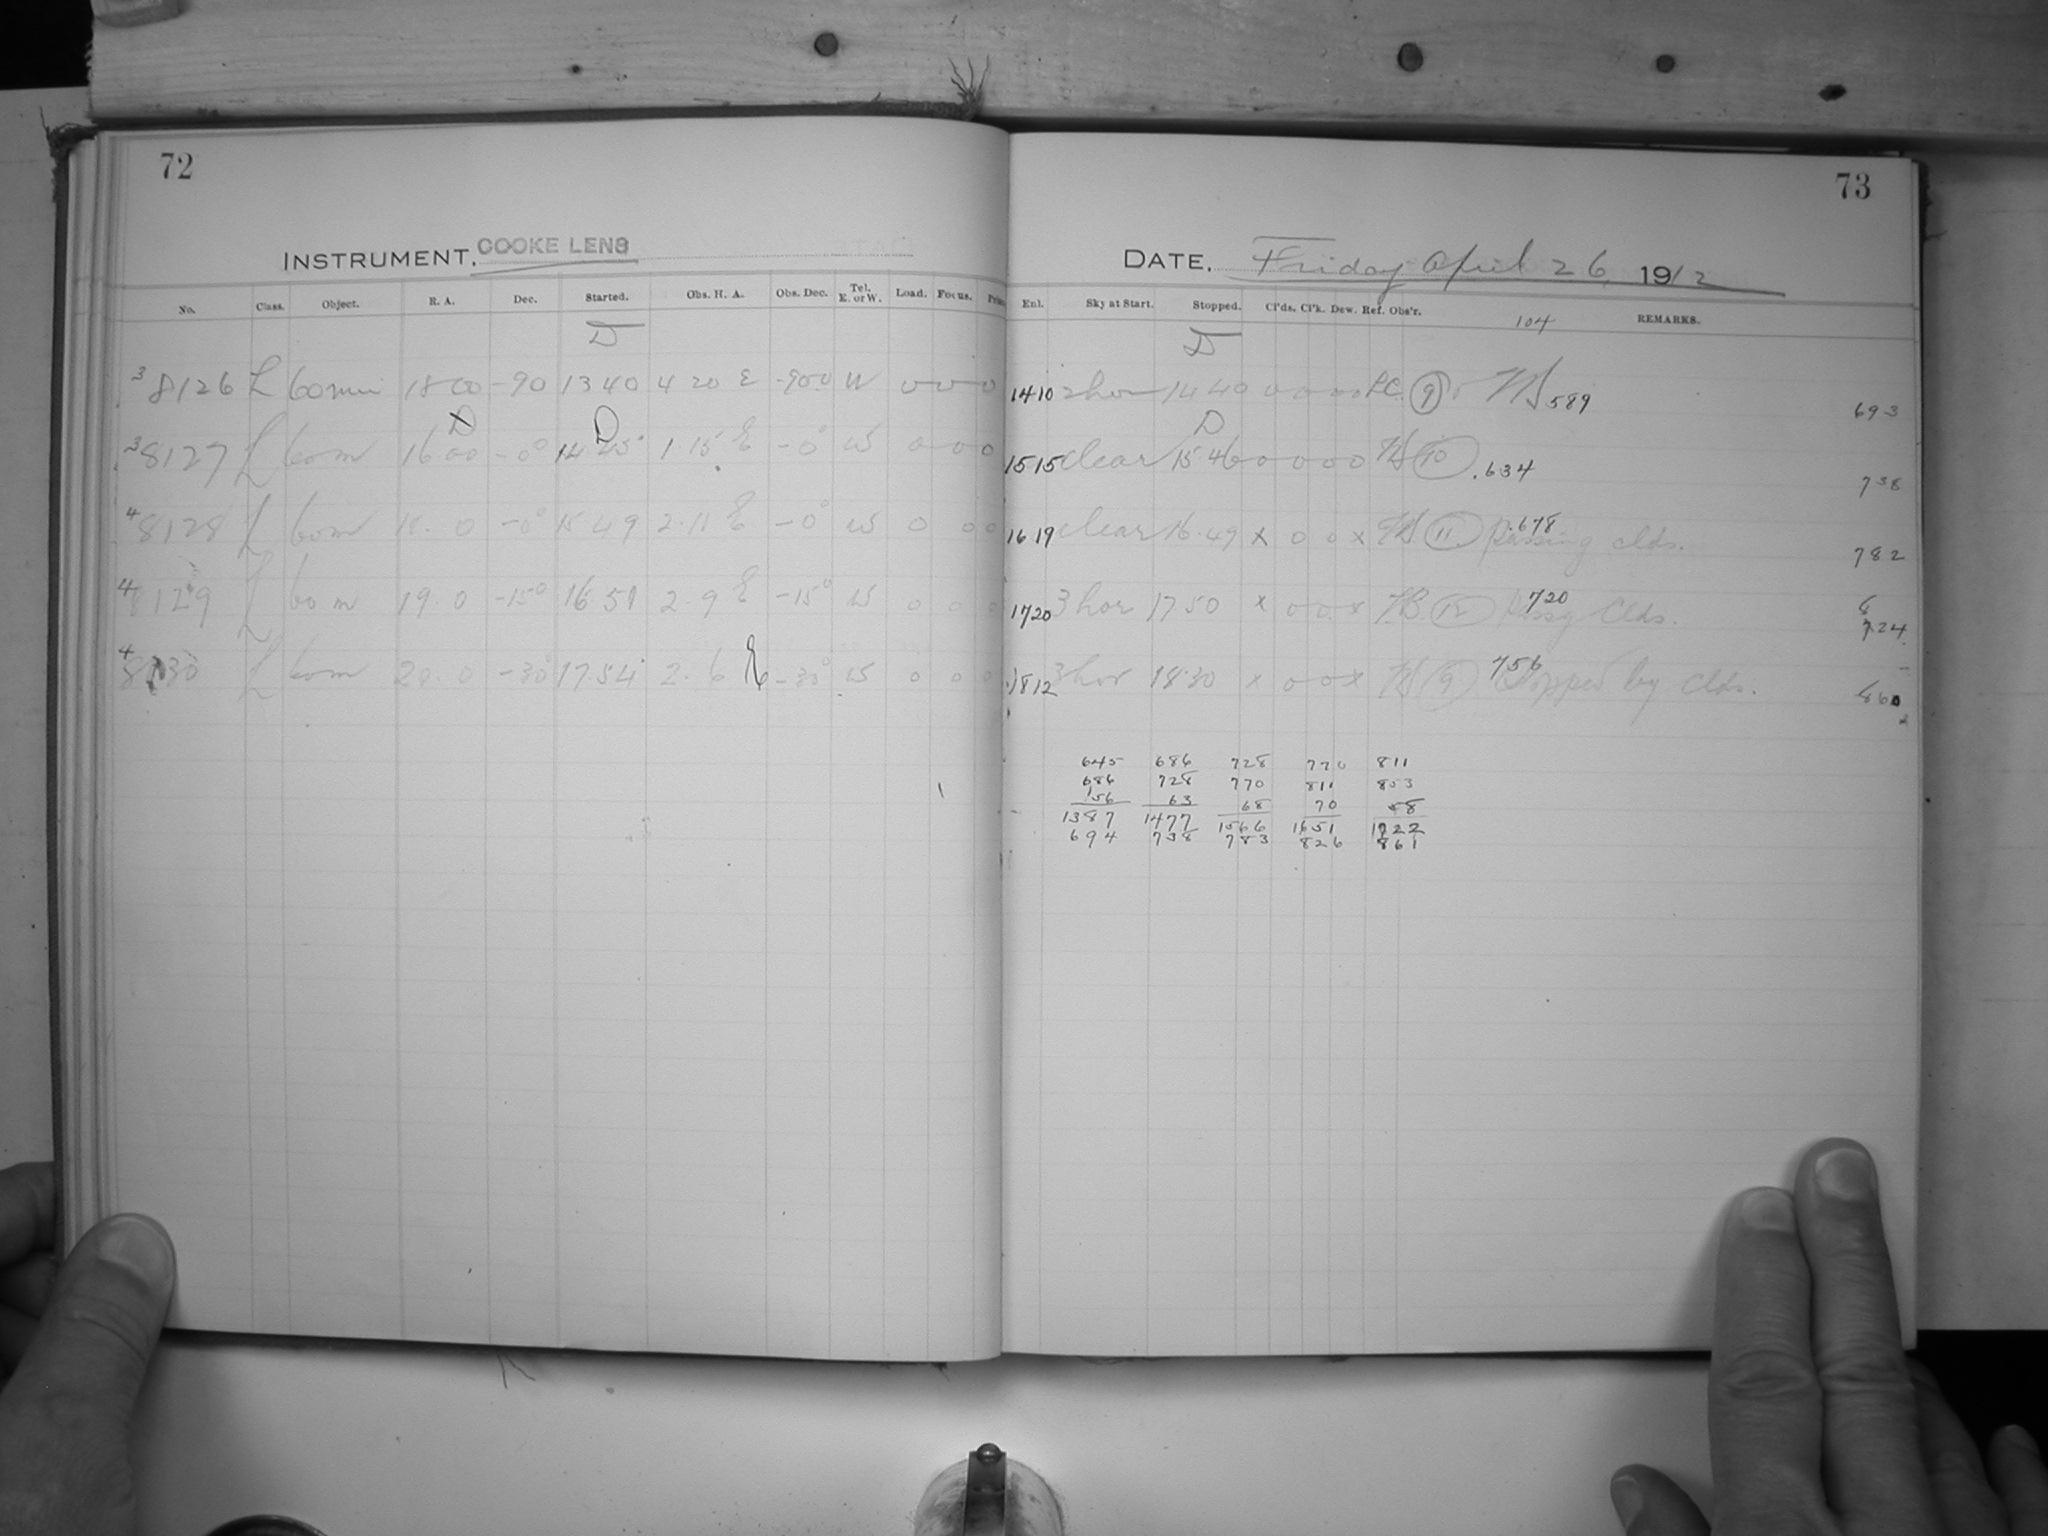 72
INSTRUMENT. COOKE LENS
No. Class. Object. R. A. Dec. Started. Obs. H. A. Obs. Dec. Tel. E. or W. Load. Focus.
D
3 8126 L 60 min 18 00 -90 13 40 4 20 E -90 0 W 0 0 0
D D
3 8127 L 60 m 16 00 -0° 14 45 1.15 E -0° W 0 0 0
4 8128 L 60 m 18. 0 -0° 15 49 2.11 E -0° W 0 0 0
4 8129 L 60 m 19. 0 -15° 16 51 2. 9 E -15° W 0 0 0
4 8130 L 60 m 20. 0 -30° 17 54 2. 6 E -30° W 0 0 0
73
DATE. Friday April 26, 1912
Enl. Sky at Start. Stopped. Cl'ds. Cl'k. Dew. Ref. Obs'r. 104 REMARKS.
D
1410 2 hor 14 40 0 0 0 0 9 589 693
D
1515 clear 15 46 0 0 0 0 10 .634 738
1619 clear 16.49 x 0 0 x 11 .678 passing clds. 782
1720 3 hor 17 50 x 0 0 x 12 720 Clds. 824
1812 3 hor 18.30 x 0 0 x 9 756 Stopped by Clds. 860
645 686 728 770 811
686 728 770 811 853
156 63 68 70 58
1387 1477 1566 1651 1722
694 738 783 826 861